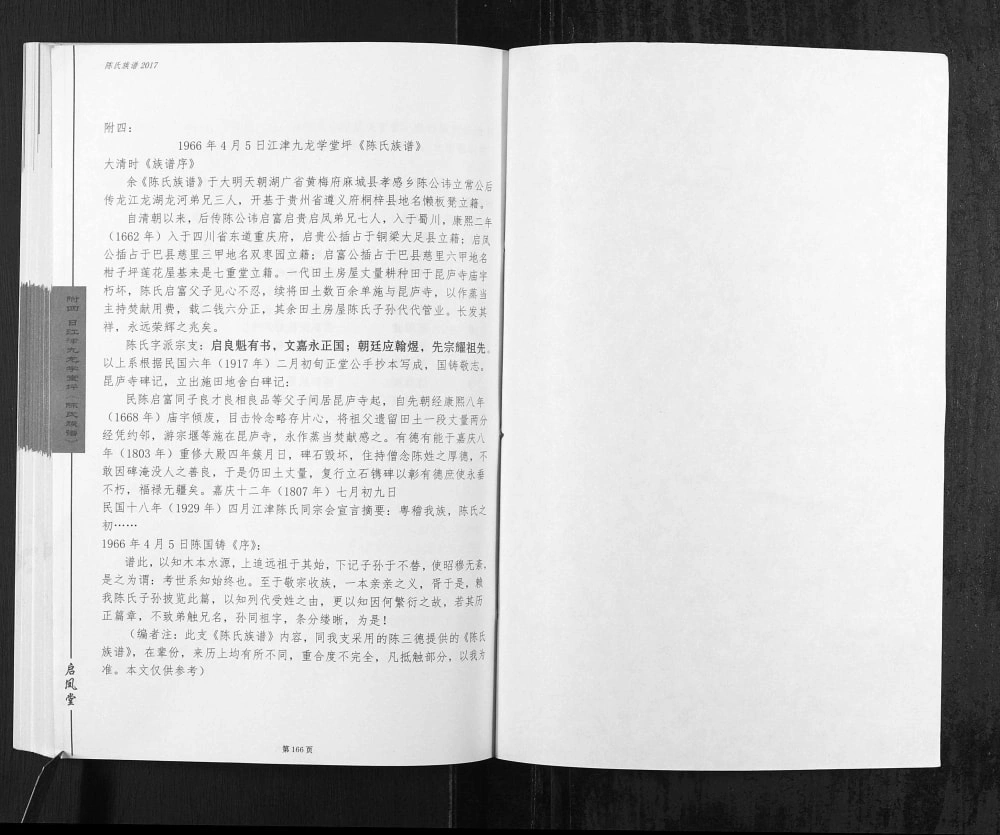 陈氏族谱 2017
附四：
1966 年 4 月 5 日江津九龙学堂坪《陈氏族谱》
大清时《族谱序》
余《陈氏族谱》于大明天朝湖广省黄梅府麻城县孝感乡陈公讳立常公后
传龙江龙湖龙河弟兄三人，开基于贵州省遵义府桐梓县地名懒板凳立籍。
自清朝以来，后传陈公讳启富启贵启凤弟兄七人，入于蜀川，康熙二年
（1662 年）入于四川省东道重庆府，启贵公插占于铜梁大足县立籍；启凤
公插占于巴县慈里三甲地名双枣园立籍；启富公插占于巴县慈里六甲地名
柑子坪莲花屋基来是七重堂立籍。一代田土房屋丈量耕种田于昆庐寺庙宇
朽坏，陈氏启富父子见心不忍，续将田土数百余单施与昆庐寺，以作蒸当
主持焚献用费，载二钱六分正，其余田土房屋陈氏子孙代代管业。长发其
祥，永远荣辉之兆矣。
陈氏字派宗支：启良魁有书，文嘉永正国；朝廷应翰煜，先宗耀祖先。
以上系根据民国六年（1917 年）二月初旬正堂公手抄本写成，国铸敬志。
昆庐寺碑记，立出施田地舍白碑记：
民陈启富同子良才良相良品等父子间居昆庐寺起，自先朝经康熙八年
（1668 年）庙宇倾废，目击怜念略存片心，将祖父遗留田土一段丈量两分
经凭约邻，游宗堰等施在昆庐寺，永作蒸当焚献感之。有德有能于嘉庆八
年（1803 年）重修大殿四年簇月日，碑石毁坏，住持僧念陈姓之厚德，不
敢因碑淹没人之善良，于是仍田土丈量，复行立石镌碑以彰有德庶使永垂
不朽，福禄无疆矣。嘉庆十二年（1807 年）七月初九日
民国十八年（1929 年）四月江津陈氏同宗会宣言摘要：粤稽我族，陈氏之
初……
1966 年 4 月 5 日陈国铸《序》：
谱此，以知木本水源，上追远祖于其始，下记子孙于不替，使昭穆无紊，
是之为谓：考世系知始终也。至于敬宗收族，一本亲亲之义，胥于是，赖
我陈氏子孙披览此篇，以知列代受姓之由，更以知因何繁衍之故，若其历
正篇章，不致弟触兄名，孙同祖字，条分缕晰，为是！
（编者注：此支《陈氏族谱》内容，同我支采用的陈三德提供的《陈氏
族谱》，在辈份，来历上均有所不同，重合度不完全，凡抵触部分，以我方
准。本文仅供参考）
第 166 页
附四 日江津九龙学堂坪《陈氏族谱》
启凤堂